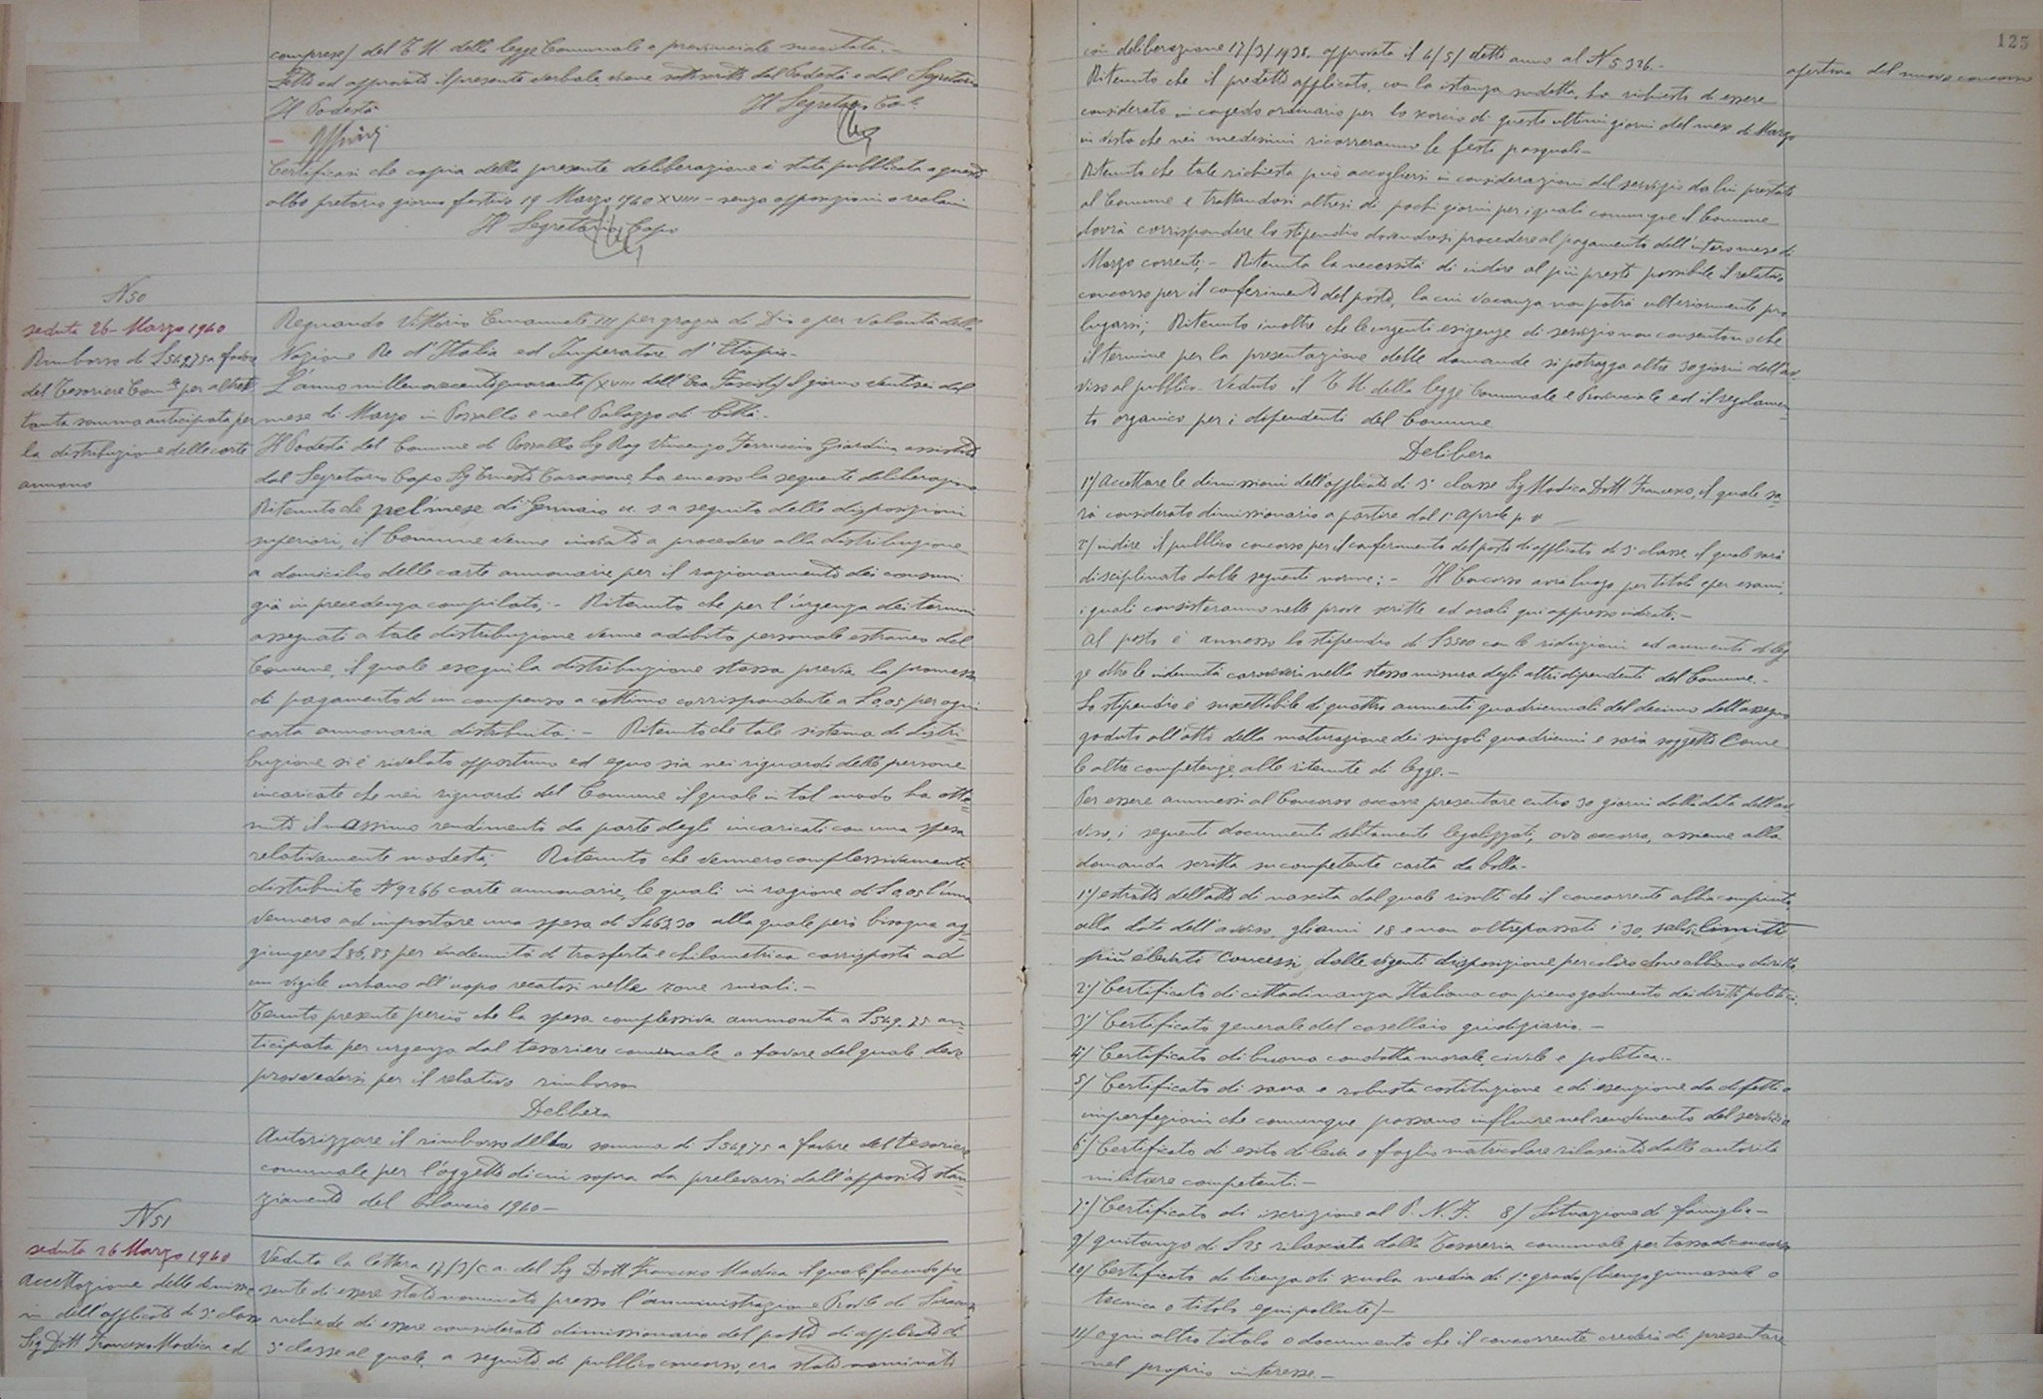 comprese) del T.U. della legge Comunale e provinciale succitata.-
Letto ed approvato il presente verbale viene sottoscritto dal Podestà e dal Segretario
Il Podestà Il Segretario Cap.
Certificasi che copia della presente deliberazione è stata pubblicata a questo
albo pretorio giorno festivo 19 Marzo 1940 XVIII - senza opposizioni o reclami
Il Segretario Capo
N 50
seduta 26 Marzo 1940
Rimborso di L 549,75 a favore
del Tesoriere Com.le per altret
tanta somma anticipata per
la distribuzione delle carte
annone
Regnando Vittorio Emanuele III per grazia di Dio e per volontà della
Nazione Re d'Italia ed Imperatore d'Etiopia-
L'anno millenovecentoquaranta (XVIII dell'Era Fascista) il giorno ventisei del
mese di Marzo in Pozzallo e nel Palazzo di Città.-
Il Podestà del Comune di Pozzallo Sig Rag Vincenzo Ferruccio Giardina assistito
dal Segretario Capo Sig Ernesto ha emesso la seguente deliberazione
Ritenuto che pel mese di Gennaio u. s a seguito delle disposizioni
superiori, il Comune venne invitato a procedere alla distribuzione
a domicilio delle carte annonarie per il razionamento dei consumi
già in precedenza compilate;- Ritenuto che per l'urgenza dei termini
assegnati a tale distribuzione venne adibito personale estraneo del
Comune, il quale eseguì la distribuzione stessa previa la promessa
di pagamento di un compenso a cottimo corrispondente a L 0,05 per ogni
carta annonaria distribuita;- Ritenuto che tale sistema di distri=
buzione si è rivelato opportuno ed equo sia nei riguardi delle persone
incaricate che nei riguardi del Comune il quale in tal modo ha otte=
nuto il massimo rendimento da parte degli incaricati con una spesa
relativamente modesta; Ritenuto che vennero complessivamente
distribuite N 9266 carte annonarie, le quali in ragione di L 0,05 l'una
vennero ad importare una spesa di L 463,30 alla quale però bisogna ag=
giungere L 86,85 per indennità di trasferta e chilometrica corrisposta ad
un vigile urbano all'uopo recatosi nelle zone rurali.-
Tenuto presente perciò che la spesa complessiva ammonta a L 549,75 an=
ticipata per urgenza dal tesoriere comunale a favore del quale deve
provvedersi per il relativo rimborso
Delibera
Autorizzare il rimborso della somma di L 549,75 a favore del tesoriere
comunale per l'oggetto di cui sopra da prelevarsi dall'apposito stan=
ziamento del bilancio 1940-
N 51
seduta 26 Marzo 1940
Accettazione delle dimissio
ni dell'applicato di 3ª classe
Sig Dott Francesco Modica ed
Veduta la lettera 17/3/c.a. del Sig Dott Francesco Modica il quale, facendo pre=
sente di essere stato nominato presso l'amministrazione Prov.le di Siracusa,
richiede di essere considerato dimissionario del posto di applicato di
3ª classe al quale, a seguito di pubblico concorso, era stato nominato
125
apertura del nuovo concorso
con deliberazione 17/3/1938. approvata il 4/5/ detto anno al N 5326.-
Ritenuto che il predetto applicato, con la istanza sudetta, ha richiesto di essere
considerato in congedo ordinario per lo scorcio di questi ultimi giorni del mese di Marzo
in vista che nei medesimi ricorreranno le feste pasquali-
Ritenuto che tale richiesta può accogliersi in considerazioni del servizio da lui prestato
al Comune e trattandosi altresì di pochi giorni per i quali comunque il Comune
dovrà corrispondere lo stipendio dovendosi procedere al pagamento dell'intero mese di
Marzo corrente;- Ritenuta la necessità di indire al più presto possibile il relativo
concorso per il conferimento del posto, la cui vacanza non potrà ulteriormente pro
lugarsi; Ritenuto inoltre che le urgenti esigenze di servizio non consentono che
il termine per la presentazione delle domande si protragga oltre 30 giorni dell'av-
viso al pubblico. Veduto il T.U. della legge Comunale e Provinciale ed il regolamen
to organico per i dipendenti del Comune
Delibera
1°) Accettare le dimissioni dell'applicato di 3ª classe Sig Modica Dott Francesco, il quale sa=
rà considerato dimissionario a partire dal 1° Aprile p v
2°) indire il pubblico concorso per il conferimento del posto di applicato di 3ª classe il quale sarà
disciplinato dalle seguenti norme:- Il Concorso avrà luogo per titoli e per esami,
i quali consisteranno nelle prove scritte ed orali qui appresso indicate.-
Al posto è annesso lo stipendio di L 5500 con le riduzioni ed aumenti di leg
ge oltre le indennità caroviveri nella stessa misura degli altri dipendenti del Comune.-
Lo stipendio è suscettibile di quattro aumenti quadriennali del decimo dell'assegno
goduto all'atto della maturazione dei singoli quadrienni e sarà soggetto come
le altre competenze alle ritenute di legge.-
Per essere ammessi al Concorso occorre presentare entro 30 giorni dalla data dell'av
viso, i seguenti documenti debitamente legalizzati, ove occorra, assieme alla
domanda scritta su competente carta da bollo-
1°) estratto dell'atto di nascita dal quale risulti che il concorrente abbia compiuto
alla data dell'avviso, gli anni 18 e non oltrepassati i 30, salvi limiti
più elevati concessi dalle vigenti disposizione per coloro che ne abbiano diritto
2°) Certificato di cittadinanza Italiana con pieno godimento dei diritti politici.
3°) Certificato generale del casellario giudiziario.-
4°) Certificato di buona condotta morale, civile e politica.-
5°) Certificato di sana e robusta costituzione e di esenzione da difetti o
imperfezioni che comunque possano influire nel rendimento del servizio
6°) Certificato di esito di leva o foglio matricolare rilasciato dalle autorità
militare competenti.-
7°) Certificato di iscrizione al P.N.F. 8) Situazione di famiglia-
9) quitanza di L 25 rilasciata dalla Tesoreria comunale per tassa di concorso
10) Certificato di licenza di scuola media di 1° grado (licenza ginnasiale o
tecnica o titolo equipollente)-
11) ogni altro titolo o documento che il concorrente crederà di presentare
nel proprio interesse.-